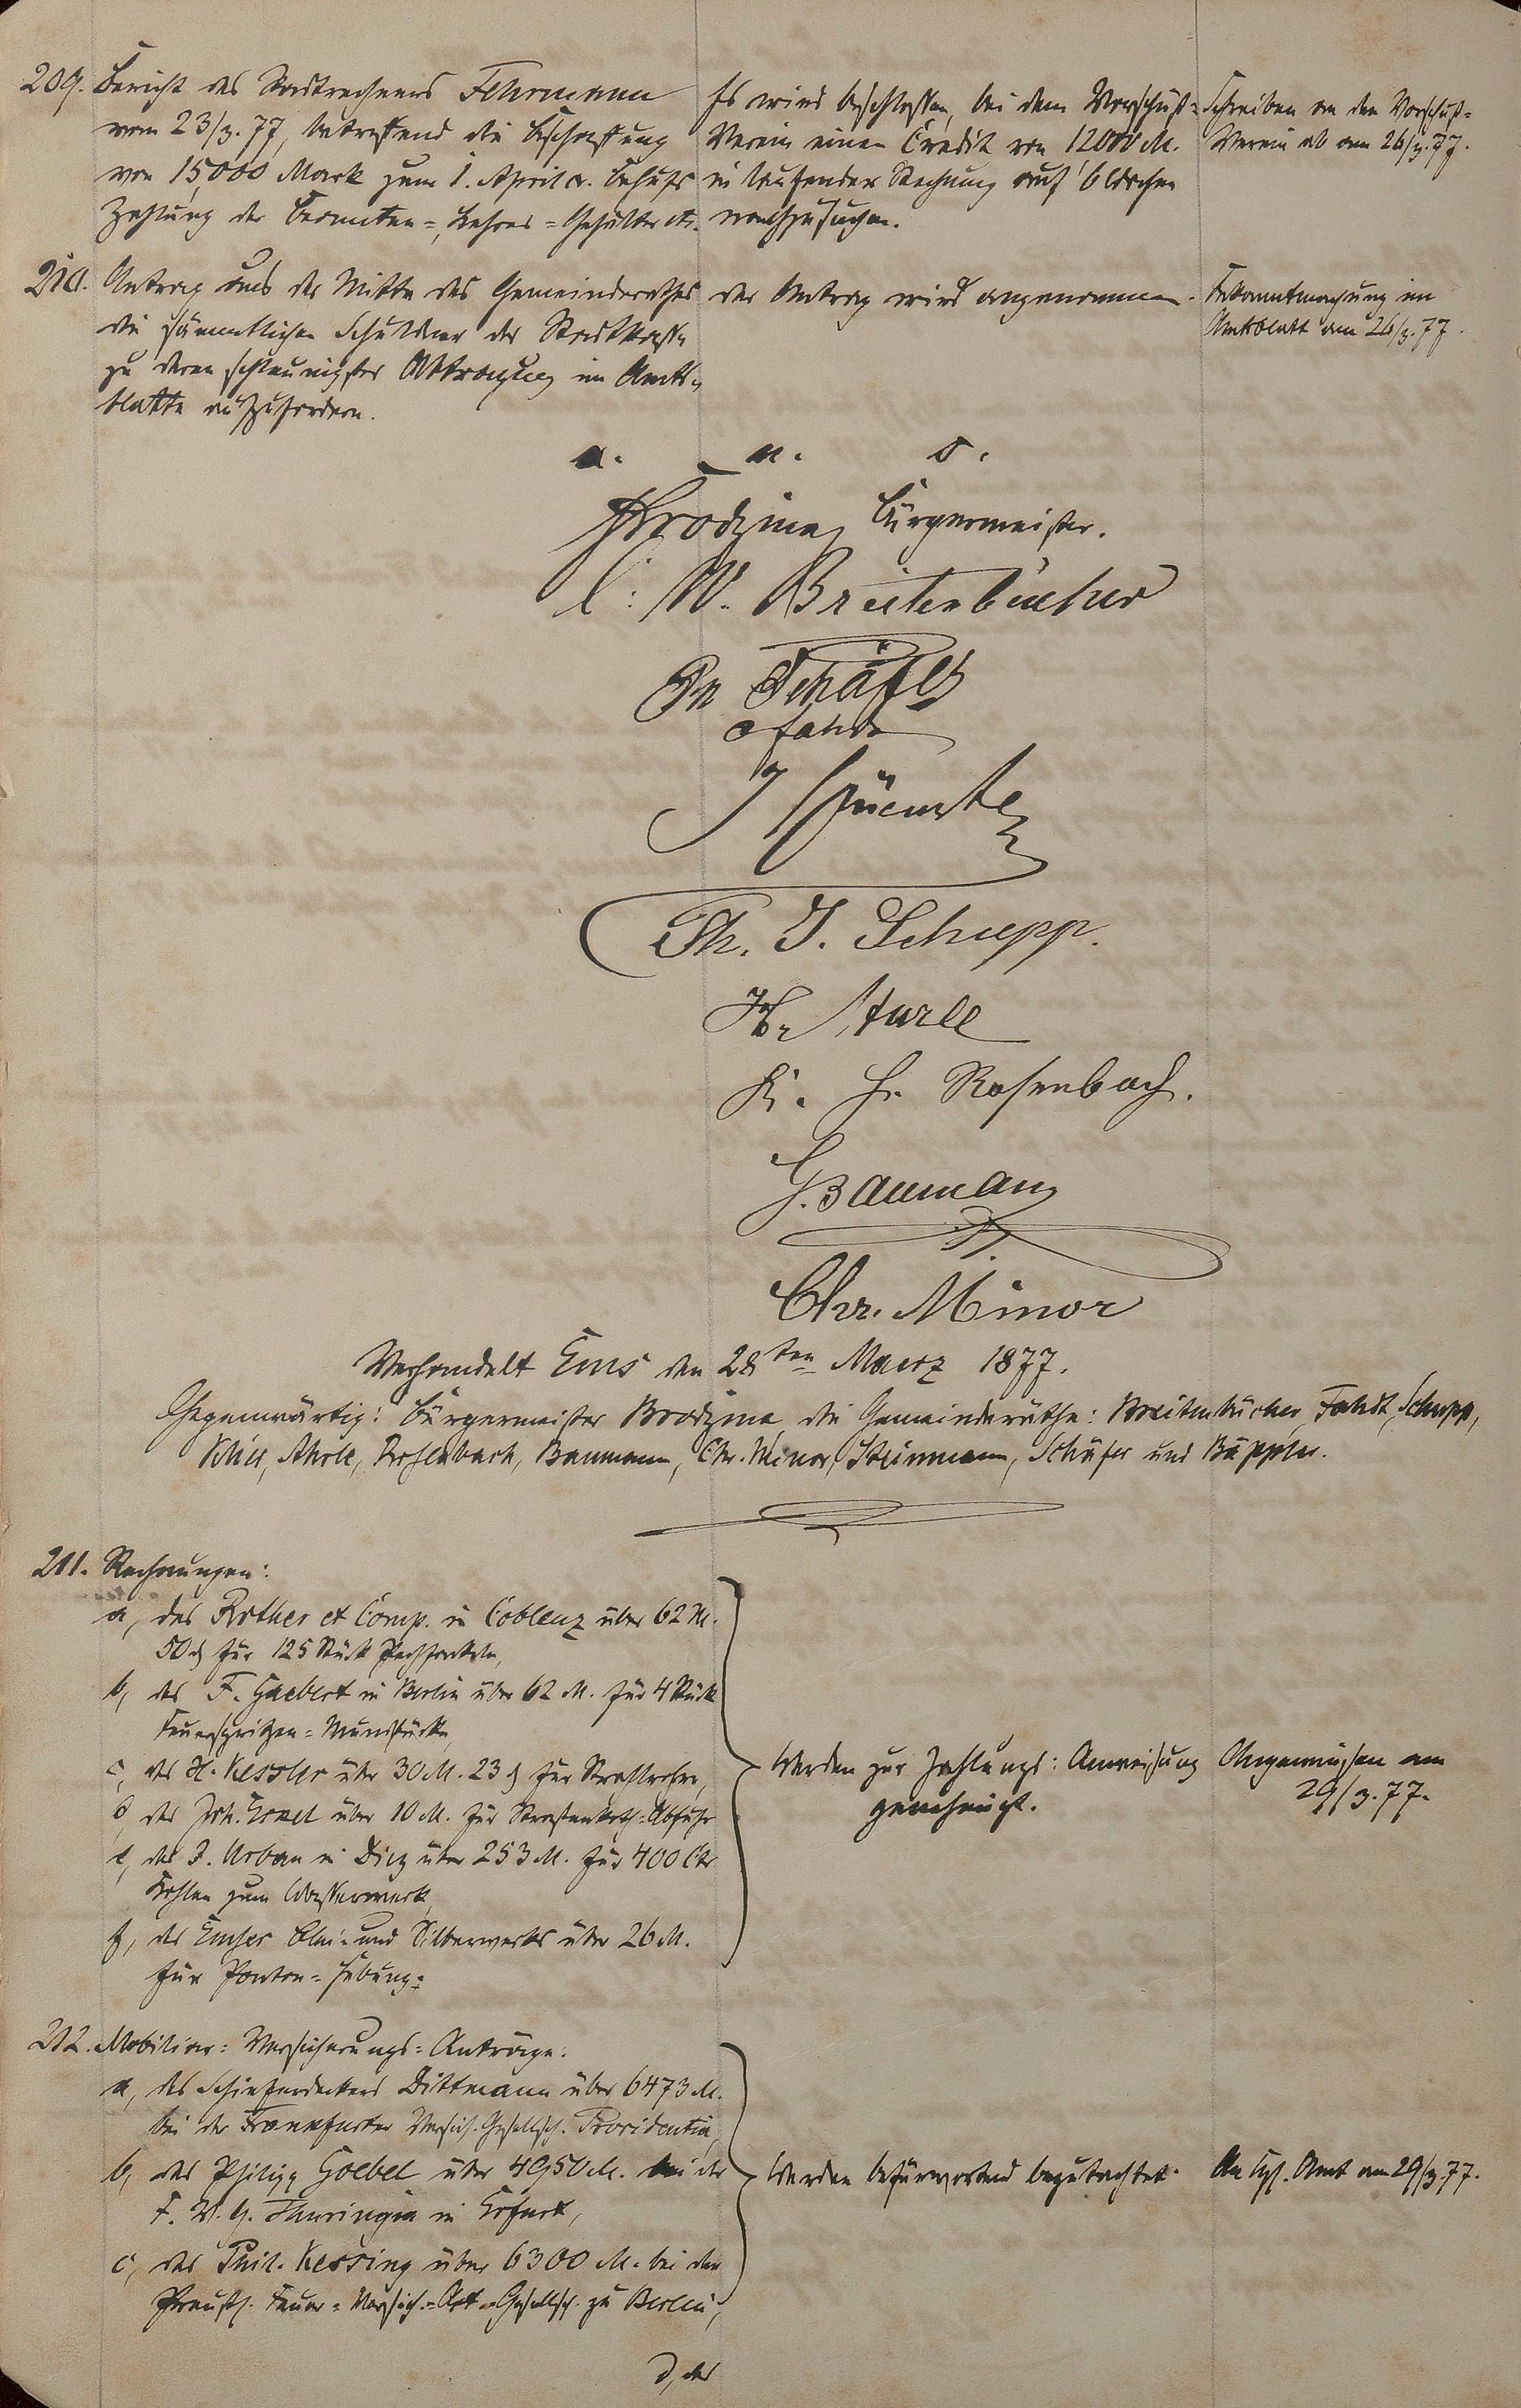 209. Bericht des Stadtrechners Fehrmann
vom 23/3. 77, betreffend die Beschaffung
von 15,000 Mark zum 1. April cr. behufs
Zahlung der Beamten-, Lehrer-Gehälter etc.
Es wird beschlossen, bei dem Vorschuß-
Verein einen Credit von 12000 M.
in laufender Rechnung auf 6 Wochen
nachzusuchen.
Schreiben an den Vorschuß-
Verein ab am 26/3. 77.
210. Antrag aus der Mitte des Gemeinderathes
die sämmtlichen Schuldner der Stadtkasse
zu deren schleunigster Abtragung im Amts-
blatte aufzufordern.
der Antrag wird angenommen.
Bekanntmachung im
Amtsblatt am 26/3. 77.
a. u. s.
Brodzina, Bürgermeister.
C: W. Breitenbücher
Ph Schäfer
Fahdt
Th. J. Schupp.
K. H. Rosenbach.
G. Baumann
Chr. Minor
Verhandelt Ems den 28ten Maerz 1877.
Gegenwärtig: Bürgermeister Brodzina die Gemeinderäthe: Breitenbücher, Fahdt, Schupp,
Rosenbach, Baumann, Chr. Minor, Steinmann, Schäfer und Käppler.
211. Rechnungen:
a, des Rother et Comp. in Coblenz über 62 M.
50 ₰ für 125 Stück Pechfackeln,
b, des F. Gaebert in Berlin über 62 M. für 4 Stück
Feuerspritzen-Mundstücke,
c, des H. Kessler über 30 M. 23 ₰ für Strahlrohre,
d, des Joh. über 10 M. für Straßenkoth-Abfuhr
e, des J. Urban in Diez über 253 M. für 400 Ctr
Kohlen zum Wasserwerk,
f, des Emser Blei- und Silberwerks über 26 M.
für Ponton-Hebung.
Werden zur Zahlungs-Anweisung
genehmigt.
Angewiesen am
29/3. 77.
212. Mobiliar-Versicherungs-Anträge:
a, des Schieferdeckers Dittmann über 6473 M.
bei der Frankfurter Versich. Gesellsch. Providentia,
b, des Philipp Goebel über 4950 M. bei der
F. V. G. Thuringia in Erfurt,
c, des Phil. Kessing über 6300 M. bei der
Preuß. Feuer-Versich.-Act-Gesellsch. zu Berlin,
Werden befürwortend begutachtet.
An Kgl. Amt am 29/3. 77.
d, des